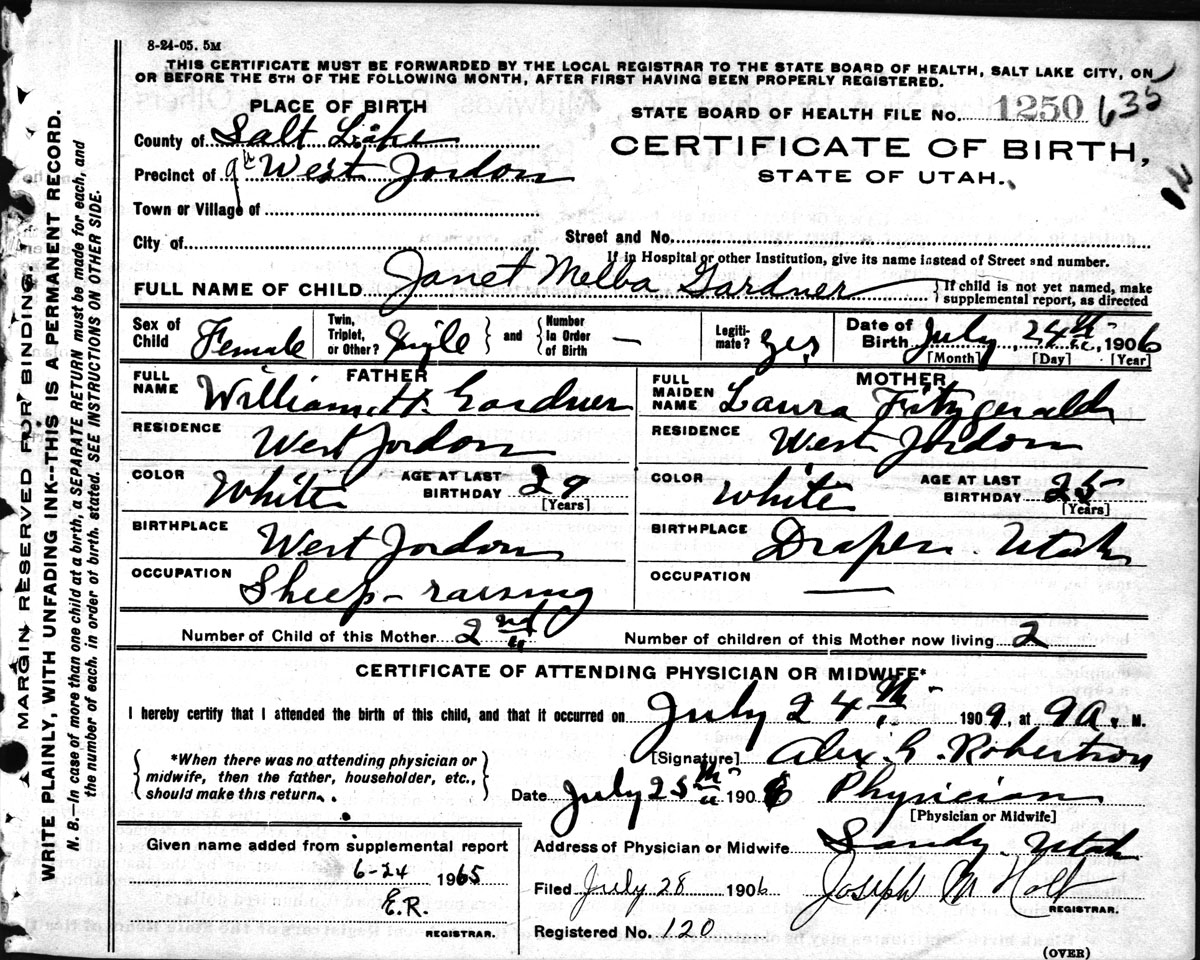 8-24-05. 5M
THIS CERTIFICATE MUST BE FORWARDED BY THE LOCAL REGISTRAR TO THE STATE BOARD OF HEALTH, SALT LAKE CITY, ON
OR BEFORE THE 5TH OF THE FOLLOWING MONTH, AFTER FIRST HAVING BEEN PROPERLY REGISTERED.
PLACE OF BIRTH
STATE BOARD OF HEALTH FILE No. 1250 635
County of Salt Lake
CERTIFICATE OF BIRTH,
Precinct of West Jordon
STATE OF UTAH.
Town or Village of
City of
Street and No.
If in Hospital or other Institution, give its name instead of Street and number.
FULL NAME OF CHILD Janet Melba Gardner
If child is not yet named, make
supplemental report, as directed
Sex of Child Female
Twin, Triplet, or Other? Single and Number in Order of Birth —
Legitimate? Yes
Date of Birth July 24th, 1906
[Month] [Day] [Year]
FATHER
FULL NAME William H. Gardner
RESIDENCE West Jordon
COLOR White AGE AT LAST BIRTHDAY 29
[Years]
BIRTHPLACE West Jordon
OCCUPATION Sheep-raising
MOTHER
FULL MAIDEN NAME Laura Fitzgerald
RESIDENCE West Jordon
COLOR White AGE AT LAST BIRTHDAY 25
[Years]
BIRTHPLACE Draper. Utah
OCCUPATION —
Number of Child of this Mother 2nd Number of children of this Mother now living 2
CERTIFICATE OF ATTENDING PHYSICIAN OR MIDWIFE*
I hereby certify that I attended the birth of this child, and that it occurred on July 24th 1909, at 9 A. M.
*When there was no attending physician or
midwife, then the father, householder, etc.,
should make this return.
[Signature] Alex. G. Robertson
Date July 25th 1906 Physician
[Physician or Midwife]
Address of Physician or Midwife Sandy. Utah
Given name added from supplemental report
6-24 1965
E.R.
REGISTRAR.
Filed July 28 1906 Joseph M Holt
REGISTRAR.
Registered No. 120
(OVER)
MARGIN RESERVED FOR BINDING.
WRITE PLAINLY, WITH UNFADING INK--THIS IS A PERMANENT RECORD.
N. B.—In case of more than one child at a birth, a SEPARATE RETURN must be made for each, and
the number of each, in order of birth, stated. SEE INSTRUCTIONS ON OTHER SIDE.